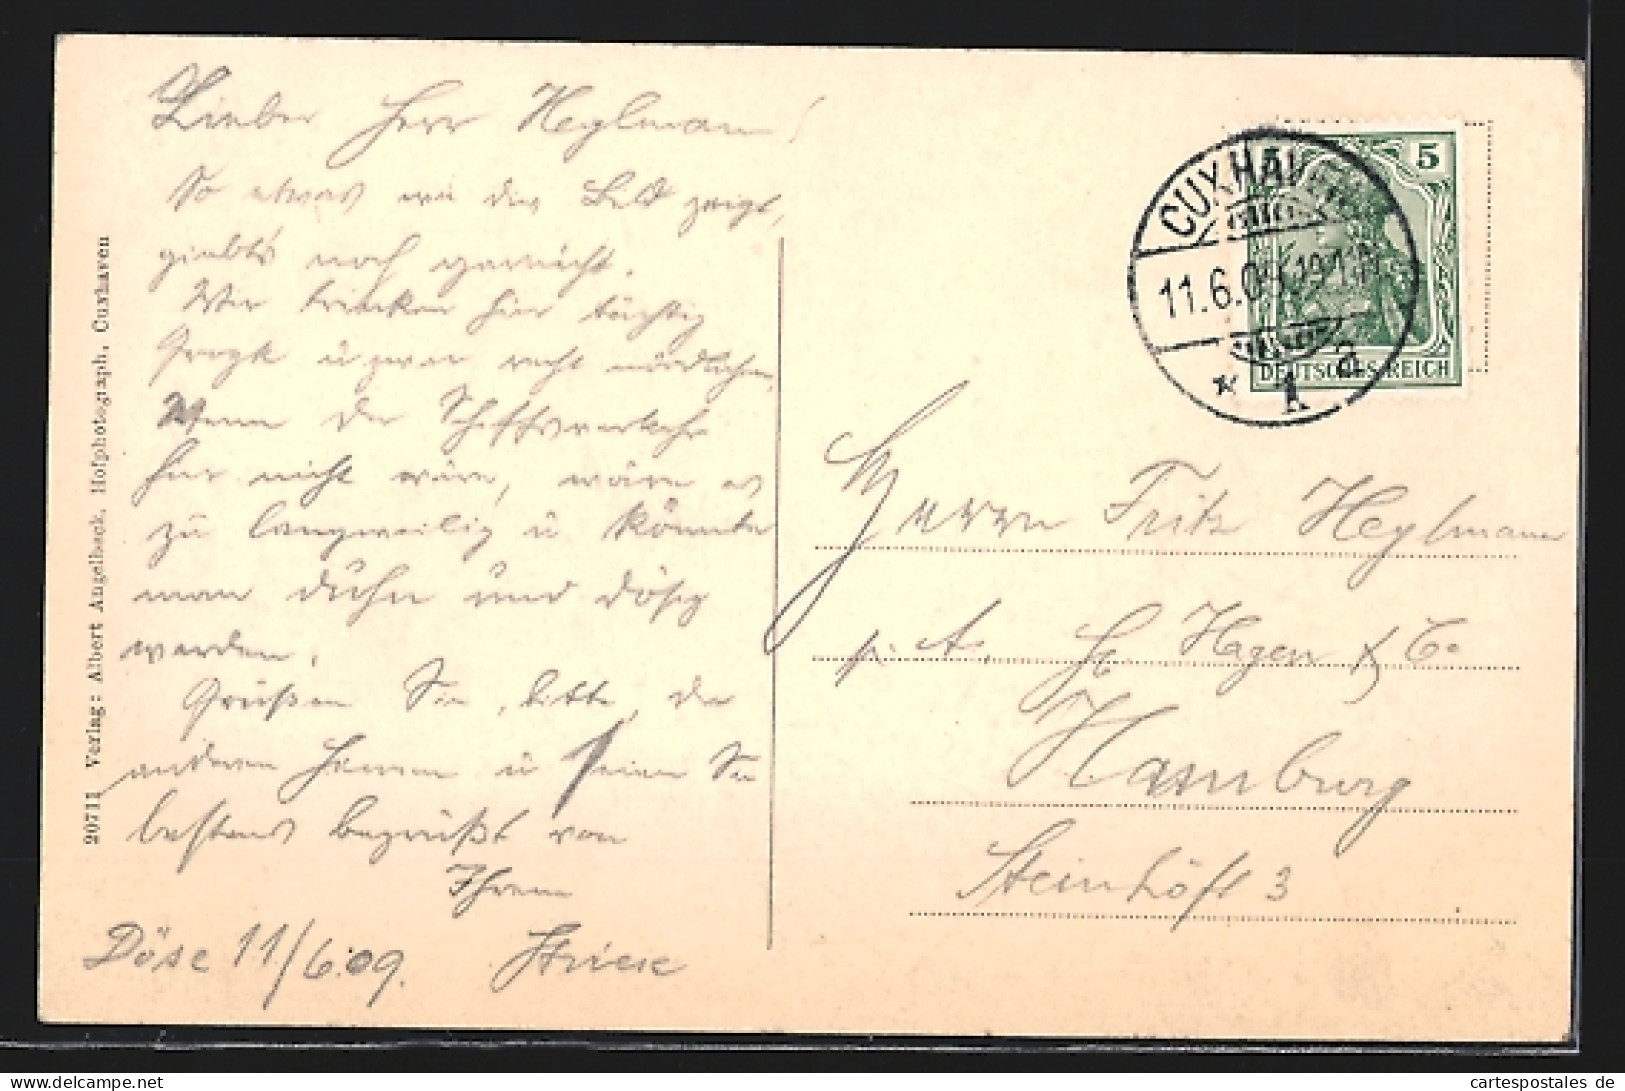 Lieber Herr Heylmann!
So etwas wie das Bild zeigt,
giebt's noch garnicht.
Wir trinken hier tüchtig
Grogk u zwar recht nördlichen,
Wenn der Schiffsverkehr
hier nicht wäre, wäre es
zu langweilig u könnte
man duhn und dösig
werden.
Grüßen Sie, bitte, die
anderen Herren u seien Sie
bestens begrüßt von
Ihrem
Döse 11/6.09.
20711 Verlag: Albert Angelbeck, Hofphotograph, Cuxhaven
CUXHAVEN
11.6.09.
* 1 a
5
DEUTSCHES REICH
Herrn Fritz Heylmann
p. A. Hagen & Co
Hamburg
Steinhöft 3
cartespostales de